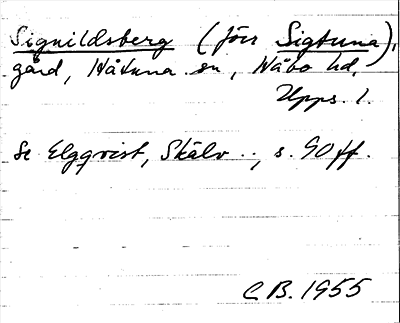 Signildsberg (förr Sigtuna),
gård, Håtuna sn, Håbo hd,
Upps. l.
Se Elgqvist, Skälv.., s. 90 ff.
C.B. 1955